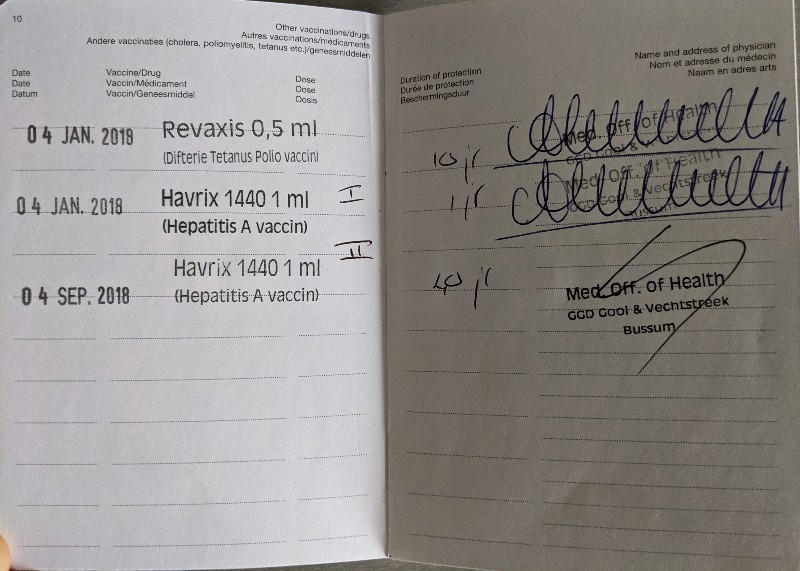 10
Other vaccinations/drugs
Autres vaccinations/médicaments
Andere vaccinaties (cholera, poliomyelitis, tetanus etc.)/geneesmiddelen
Date Vaccine/Drug Dose
Date Vaccin/Médicament Dose
Datum Vaccin/Geneesmiddel Dosis
04 JAN. 2018 Revaxis 0,5 ml
(Difterie Tetanus Polio vaccin)
04 JAN. 2018 Havrix 1440 1 ml I
(Hepatitis A vaccin)
Havrix 1440 1 ml II
04 SEP. 2018 (Hepatitis A vaccin)
Name and address of physician
Duration of protection Nom et adresse du médecin
Durée de protection Naam en adres arts
Beschermingsduur
10 jr Med. Off. of Health
GGD Gooi &
1 jr Med. Off. of Health
& Vechtstreek
Bussum
40 jr Med. Off. of Health
GGD Gooi & Vechtstreek
Bussum